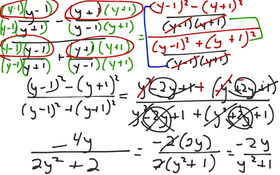 (y-1)(y-1) - (y+1)(y+1)
(y-1)(y+1) (y-1)(y+1)
(y-1)(y-1) + (y+1)(y+1)
(y-1)(y+1) (y-1)(y+1)
= (y-1)² - (y+1)²
(y-1)(y+1)
(y-1)² + (y+1)²
(y-1)(y+1)
(y-1)² - (y+1)² = y² - 2y + 1
(y-1)² + (y+1)² y² - 2y + 1 + (y² + 2y + 1)
-4y = -2(2y) = -2y
2y² + 2 2(y² + 1) y² + 1